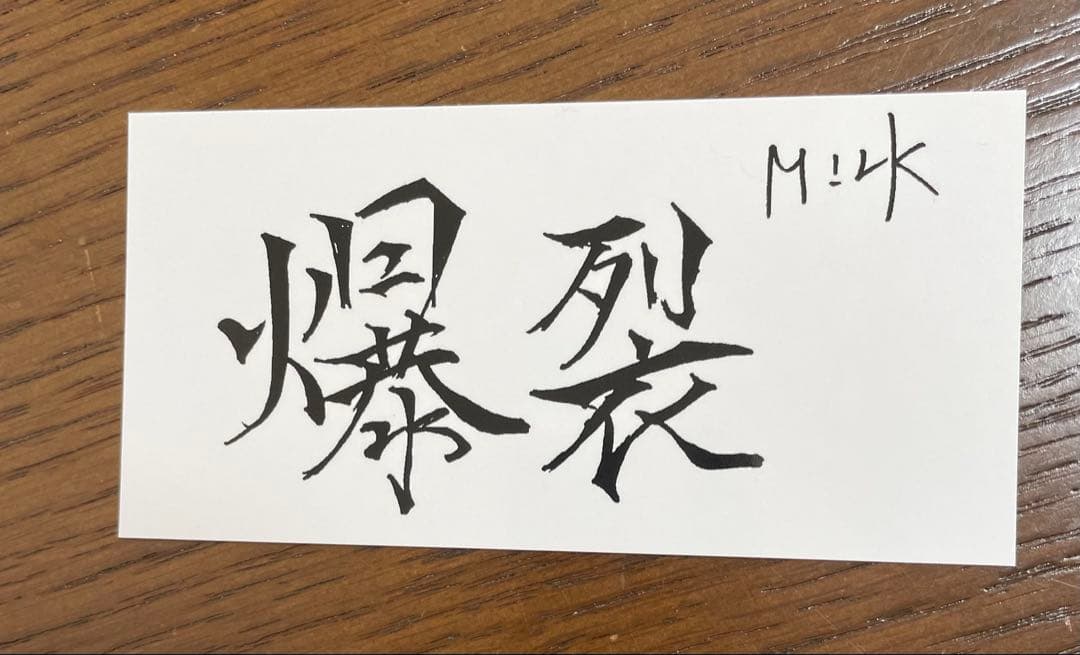 M!LK
爆裂